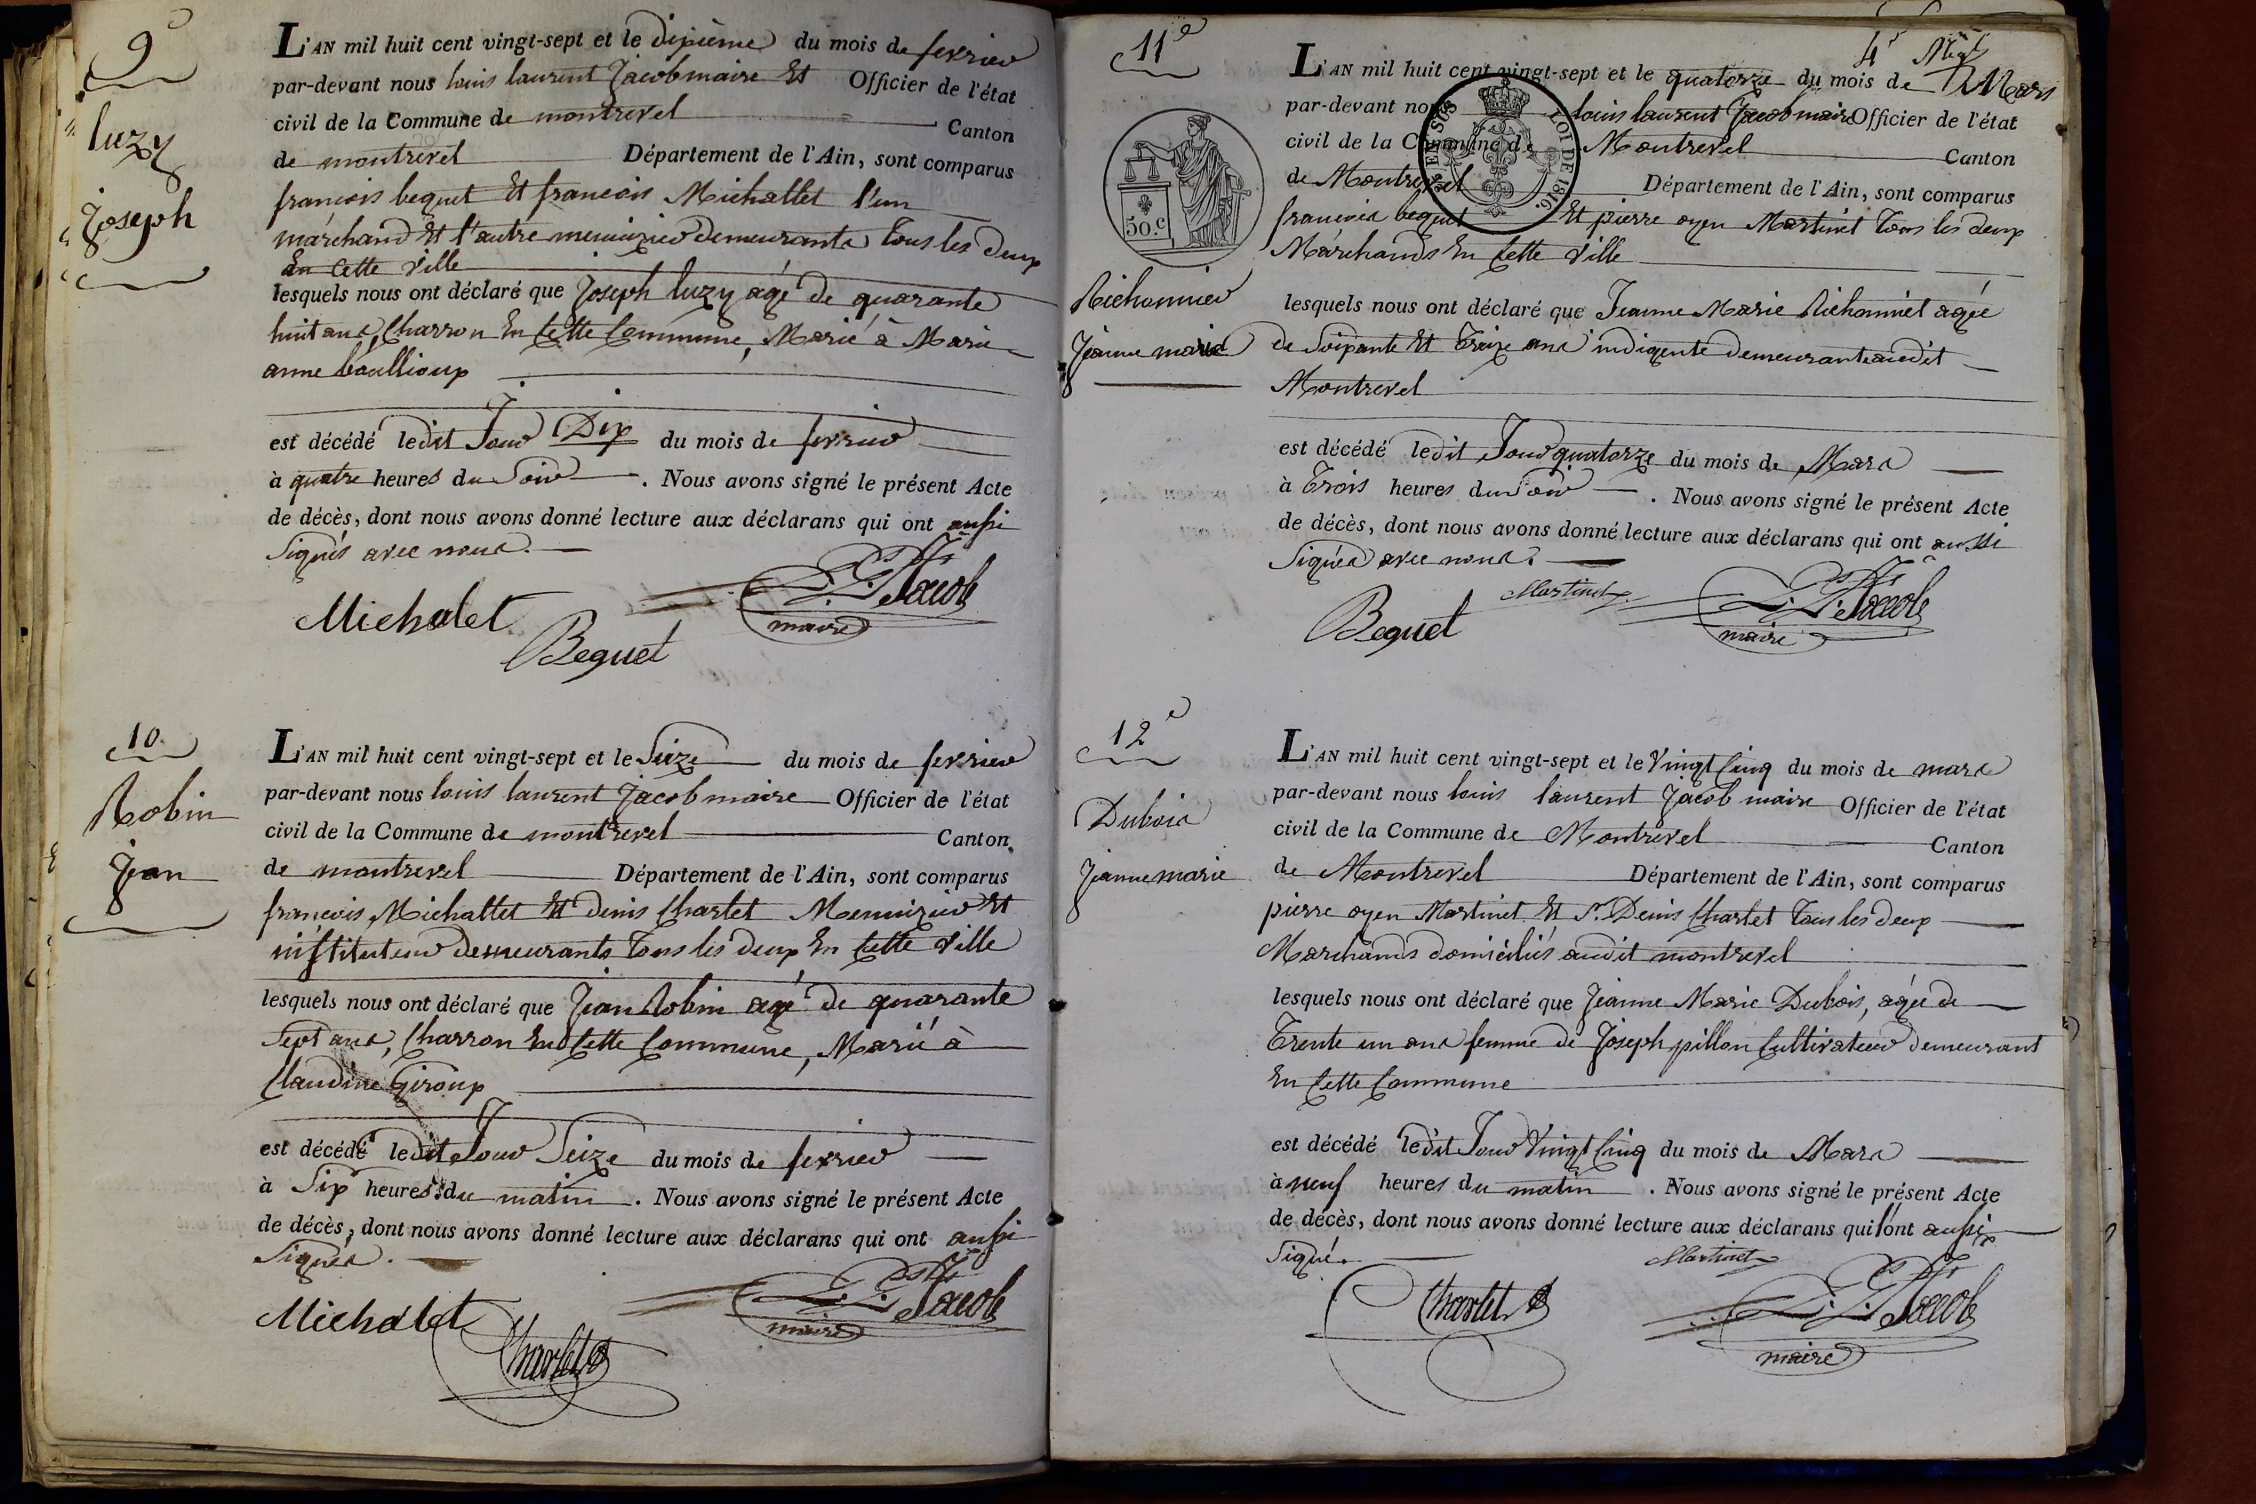 9e
luzy
Joseph
L'AN mil huit cent vingt-sept et le dixième du mois de fevrier
par-devant nous louis laurent Jacob maire Et Officier de l'état
civil de la Commune de montrevel Canton
de montrevel Département de l'Ain, sont comparus
francois bequet Et francois Michallet l'un
marchand Et l'autre menuizier demeurants tous les deux
En Cette ville
lesquels nous ont déclaré que Joseph luzy agé de quarante
huit ans, Charron En Cette Commune, Marié à Marie
anne
est décédé ledit Jour Dix du mois de fevrier
à quatre heures du Soir . Nous avons signé le présent Acte
de décès, dont nous avons donné lecture aux déclarans qui ont aussi
Signés avec nous.
Michalet
Bequet
L. L. Jacob
maire
10
Robin
Jean
L'AN mil huit cent vingt-sept et le Seize du mois de fevrier
par-devant nous louis laurent Jacob maire Officier de l'état
civil de la Commune de montrevel Canton
de montrevel Département de l'Ain, sont comparus
francois Michallet Et denis Charlet Menuizier Et
instituteur demeurants tous les deux En Cette ville
lesquels nous ont déclaré que Jean Robin agé de quarante
Sept ans, Charron En Cette Commune, Marié à
Claudine Giroux
est décédé ledit Jour Seize du mois de fevrier
à Six heures du matin . Nous avons signé le présent Acte
de décès, dont nous avons donné lecture aux déclarans qui ont aussi
Signés.
Michalet
Charlet
L. L. Jacob
maire
4e
11e
50.c
EN SUS LOI DE 1816.
Richonnier
Jeanne marie
L'AN mil huit cent vingt-sept et le quatorze du mois de Mars
par-devant nous louis laurent Jacob maire Officier de l'état
civil de la Commune de Montrevel Canton
de Montrevel Département de l'Ain, sont comparus
francois bequet Et pierre oyen Martinet tous les deux
Marchands En Cette ville
lesquels nous ont déclaré que Jeanne Marie Richonniet agée
de Soixante Et treize ans indigente demeurante audit
Montrevel
est décédé ledit Jour quatorze du mois de Mars
à trois heures du Soir . Nous avons signé le présent Acte
de décès, dont nous avons donné lecture aux déclarans qui ont aussi
Signés avec nous.
Martinet
Bequet
L. L. Jacob
maire
12e
Dubois
Jeanne marie
L'AN mil huit cent vingt-sept et le Vingt Cinq du mois de mars
par-devant nous louis laurent Jacob maire Officier de l'état
civil de la Commune de Montrevel Canton
de Montrevel Département de l'Ain, sont comparus
pierre oyen Martinet Et Sr Denis Charlet tous les deux
Marchands domiciliés audit montrevel
lesquels nous ont déclaré que Jeanne Marie Dubois, agée de
trente un ans femme de Joseph pillon Cultivateur demeurant
En Cette Commune
est décédé ledit Jour Vingt Cinq du mois de Mars
à neuf heures du matin . Nous avons signé le présent Acte
de décès, dont nous avons donné lecture aux déclarans qui ont aussi
Signé.
Martinet
Charlet
L. L. Jacob
maire